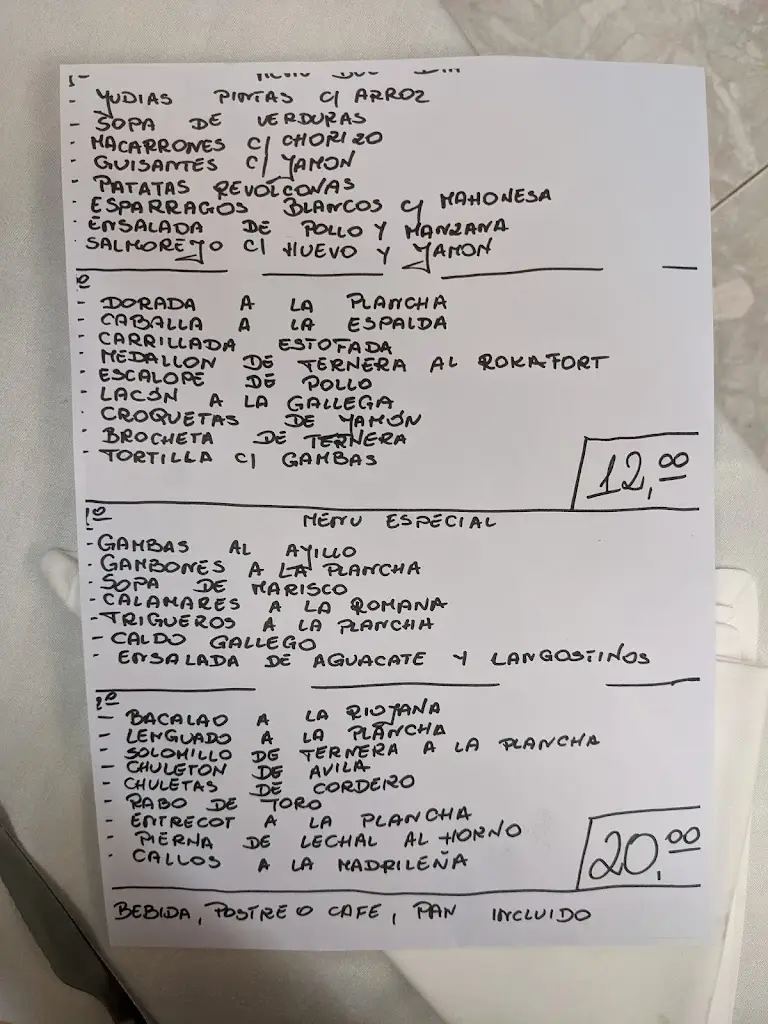 1º MENU DEL DIA
- YUDIAS PINTAS C/ ARROZ
- SOPA DE VERDURAS
- MACARRONES C/ CHORIZO
- GUISANTES C/ YAMON
- PATATAS REVOLCONAS
- ESPARRAGOS BLANCOS C/ MAHONESA
- ENSALADA DE POLLO Y MANZANA
- SALMOREJO C/ HUEVO Y JAMON
2º
- DORADA A LA PLANCHA
- CABALLA A LA ESPALDA
- CARRILLADA ESTOFADA
- MEDALLON DE TERNERA AL ROKAFORT
- ESCALOPE DE POLLO
- LACÓN A LA GALLEGA
- CROQUETAS DE YAMÓN
- BROCHETA DE TERNERA
- TORTILLA C/ GAMBAS
12,00
1º MENU ESPECIAL
- GAMBAS AL AYILLO
- GAMBONES A LA PLANCHA
- SOPA DE MARISCO
- CALAMARES A LA ROMANA
- TRIGUEROS A LA PLANCHA
- CALDO GALLEGO
- ENSALADA DE AGUACATE Y LANGOSTINOS
2º
- BACALAO A LA RIOJANA
- LENGUADO A LA PLANCHA
- SOLOMILLO DE TERNERA A LA PLANCHA
- CHULETON DE AVILA
- CHULETAS DE CORDERO
- RABO DE TORO
- ENTRECOT A LA PLANCHA
- PIERNA DE LECHAL AL HORNO
- CALLOS A LA MADRILEÑA
20,00
BEBIDA, POSTRE O CAFE, PAN INCLUIDO